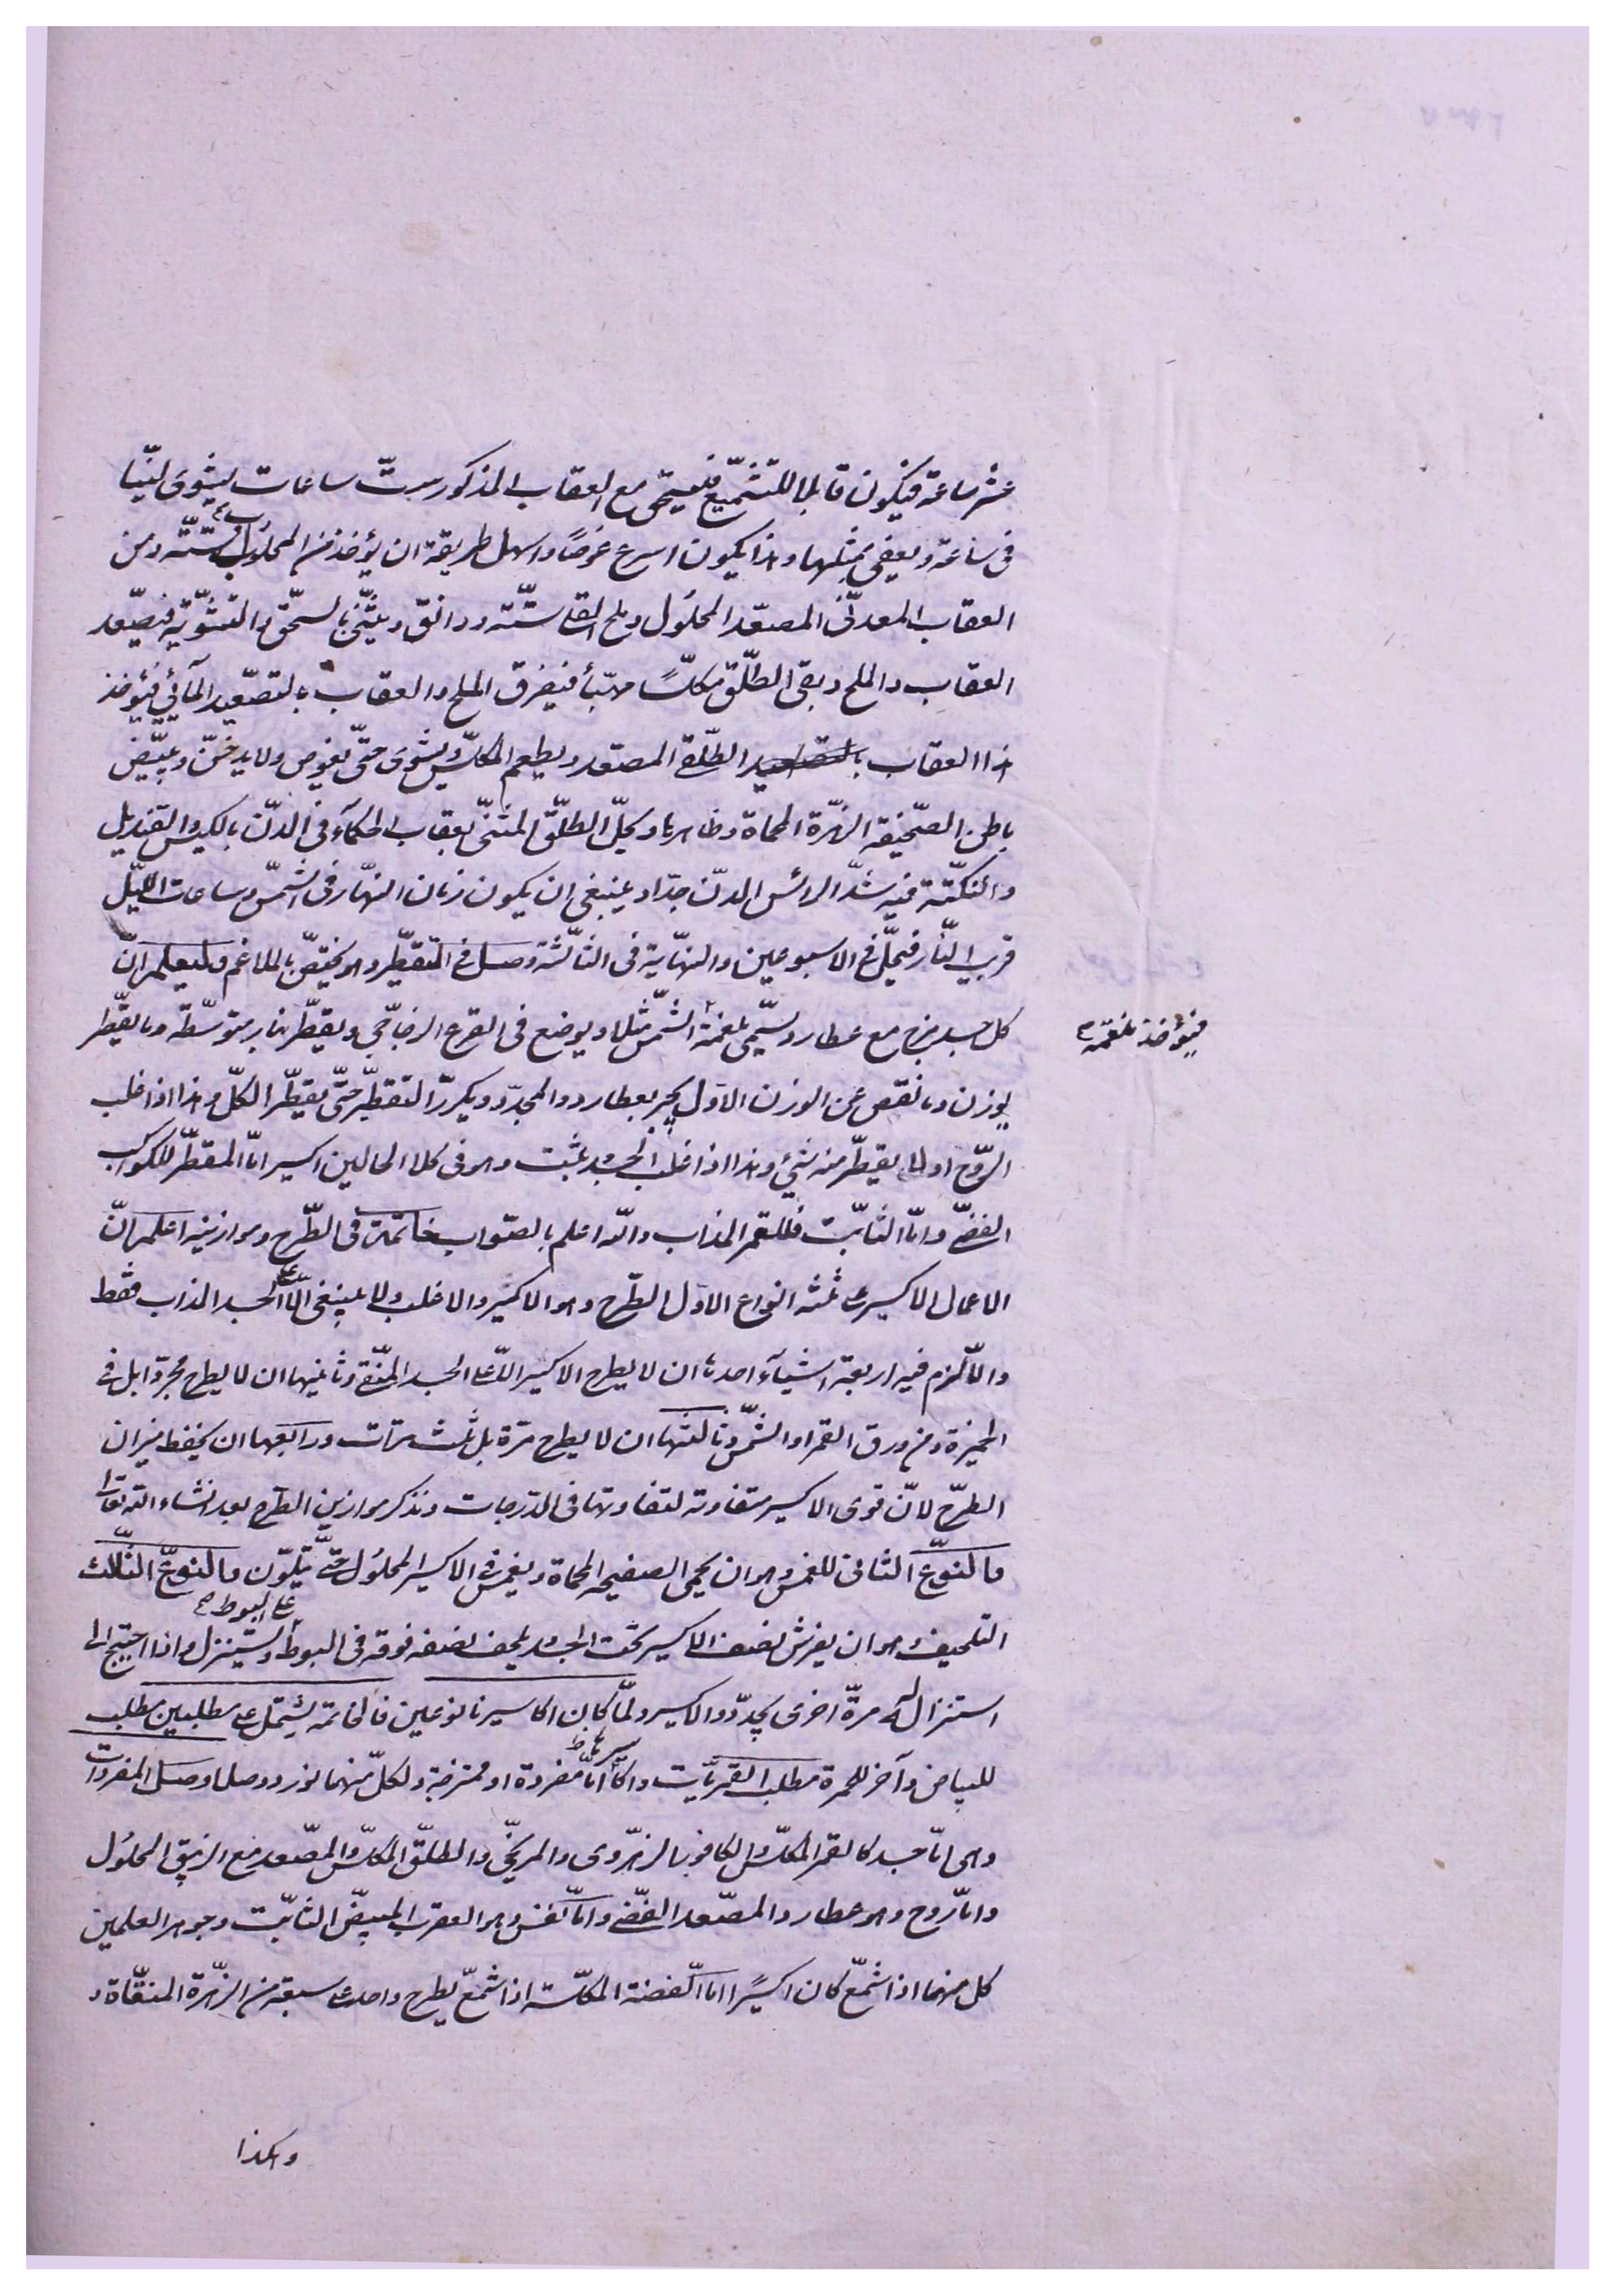 عشر ساعة فيكون قابلا للتشميع فيسحق مع العقاب المذكور ست ساعات ليشوى لينا
فى ساعة ويعفى بمثلها وهذا يكون اسرع غوصًا واسهل طريقة ان يؤخذ من المحلوب ستّة ومن
العقاب المعدنى المصعّد المحلول وملح القلى ستّة ودانق ويثنّى بالسحق والتشوية فيصعّد
العقاب والملح وبقى الطّلق مكلّسًا مهبّأ فيفرق الملح والعقاب بالتصعيد المآئى فيؤخذ
هذا العقاب الطّلق المصعّد ويطعم المكلّس ويشوى حتّى يغوص ولا يدخّن ويبيّض
باطن الصّحيفة الزهرة المحماة وظاهرها ويحلّ الطلّق المثنّى بعقاب الحكمآء فى الدّن بالكيس والقنديل
والنكتّة فيه شدّ الرأس الدنّ جدّا وينبغى ان يكون زمان النهار فى الشمس وساعات الليّل
قريب النّار فيحلّ فى الاسبوعين والنهاية فى الثالثة وصل فى التقطير وهو يختصّ بالملاغم وليعلم انّ
كل جسد مزج مع عطارد يسمّى بلغمة الشمس مثلا ويوضع فى القرع الزجاجى ويقطّر بنار متوسّطة وما يقطّر
فيؤخذ بلغمه صح
يوزن وما نقص عن الوزن الاوّل يجبر بعطارد والمجدد ويكرّر التقطير حتّى يقطّر الكلّ وهذا اذا غلب
الرّوح او لا يقطّر منه شئ وهذا اذا غلب الجسد يثبت وهو فى كلا الحالين اكسير امّا المقطّر للكواكب
الفضّى وامّا الثابت فللقمر المذاب والله اعلم بالصّواب خاتمة فى الطّرح وموازينه اعلم انّ
الاعمال الاكسير على ثلثة انواع الاوّل الطّرح وهو الاكثر والاغلب ولا ينبغى الّا على الجسد المذاب فقط
والالزم فيه اربعة اشيآء احدها ان لا يطرح الاكسير الّا على الجسد المنقّى وثانيها ان لا يطرح مجرّدا بل فى
الخميرة ومن ورق القمر او الشمس وثالثها ان لا يطرح مرّة بل ثلث مرّات ورابعها ان يحفظ ميزان
الطرح لانّ قوى الاكسير متفاوتة لتفاوتها فى الدّرجات ونذكر موازين الطّرح بعد انشاء الله تعالى
والنوع الثانى للغمس وهو ان يحمى الصفيحة المحماة ويغمس فى الاكسير المحلول حتّى يتلوّن والنوع الثّالث
التلحيف وهو ان يفرش نصف الاكسير تحت الجسد ويلحف نصفه فوقه فى البوط ويستنزل واذا احتيج الى
على البوط صح
استنزاله مرّة اخرى يجدّد والاكسير ولمّا كان اكاسيرنا نوعين فالخاتمة يشتمل على مطلبين مطلب
للبياض وآخر للحمرة مطلب القمريّات وامّا مفردة او ممتزجة ولكلّ منهما نورد وصلا وصل المفردات
وهى امّا جسد كالقمر المكلّس والكافور بالزهروى والمريخى والطلّق المكلّس والمصعّد مع الزيبق المحلول
وامّا روح وهو عطارد والمصعّد الفضّى وامّا نفس وهو العقرب المبيضّ الثابت وجوهر العلمين
كل منهما اذا شمّع كان اكسيرًا امّا الفضة المكلّسة اذا شمع يطرح واحد على سبعة من الزّهرة المنقّاة و
وهكذا